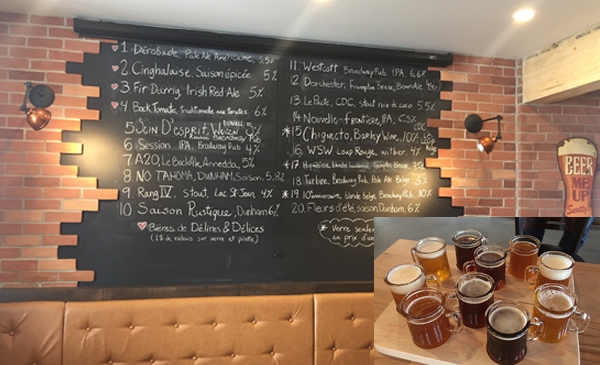 1. Dérobade, Pale Ale Américaine, 5.5%
2 Cinghalaise, Saison épicée 5%
3 Fir Darrig, Irish Red Ale 5%
4 Back Tomate, Traditionnelle aux tomates 6%
5 Soin D'Esprit, Weizen
6 Session, IPA, Broadway Pub 4%
7 A20, Le BockAle, Annedda, 5%
8 NO TAHOMA, DUNHAM, Saison, 5,8%
9. Rang IV, Stout, Lac St-Jean, 4%
10 Saison Rustique, Dunham 6%
Bières de Délires & Délices
(1$ de rabais sur verre et pinte)
11. Westcott, Broadway Pub IPA, 6.6%
12 Dorchester, Brown Ale 4%
13 Le Pacte, CDC, stout noix de coco 5.5%
14 Nouvelle-Frontière, IPA, 6.5%
*15 Chignecto, Barley Wine,
16 WSW Loup Rouge, 4.7%
*17
18 Turbine, Broadway Pub, Pale Ale Belge, 5%
*19 10ième anniversaire, blonde belge, Broadway Pub, 10%
20. Fleurs d'été, saison, Dunham, 6%
* Verre seulement
au prix d'une
BEER
ME
UP